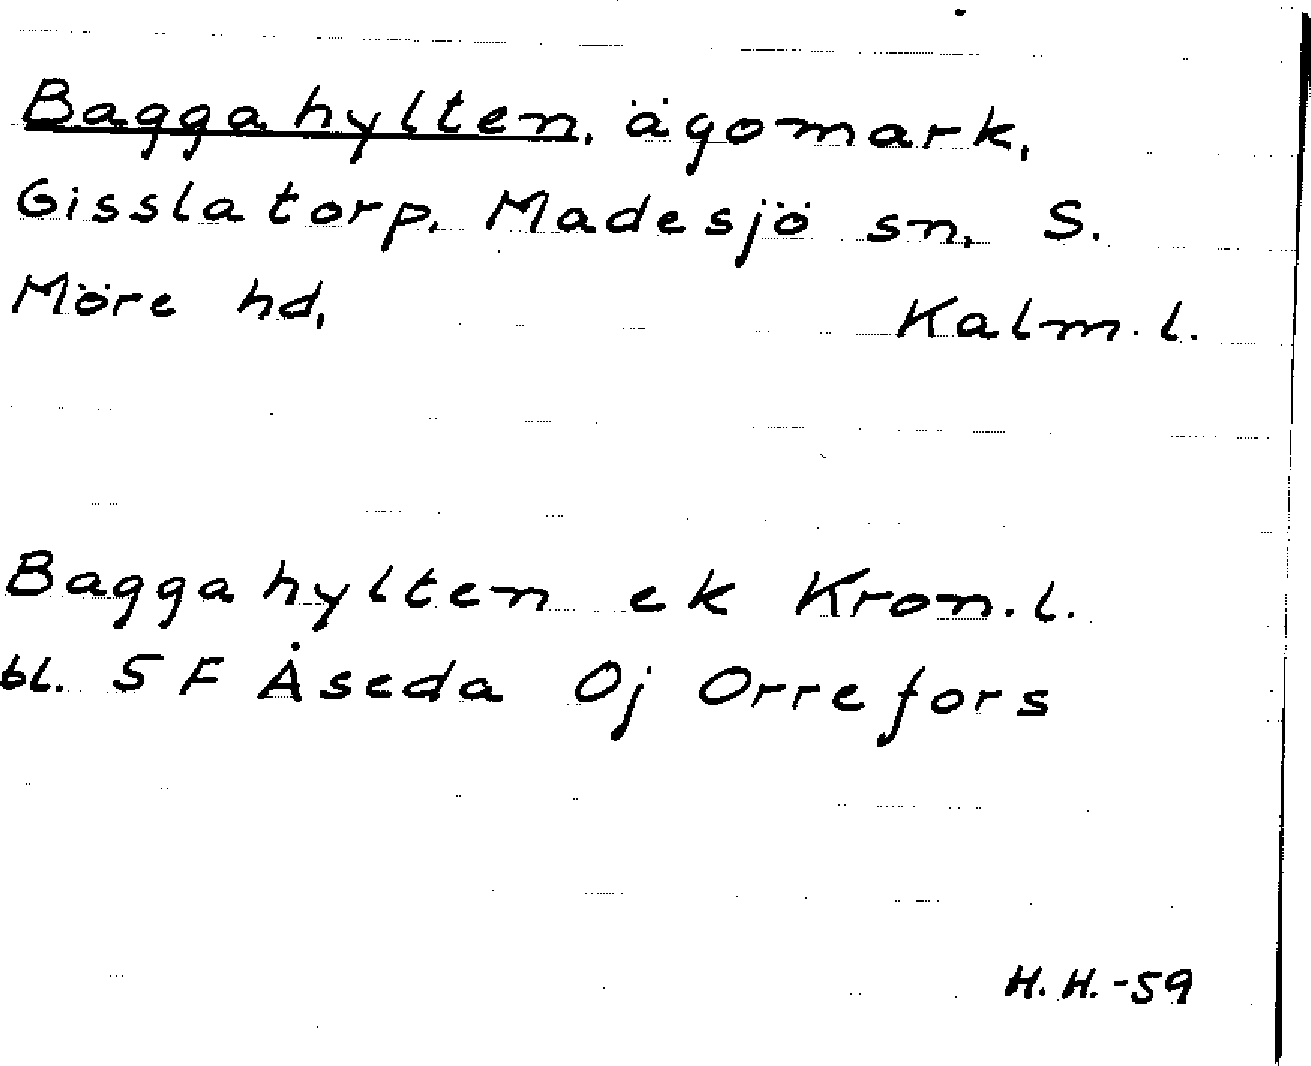 Baggahylten, ägomark,
Gisslatorp, Madesjö sn, S.
Möre hd, Kalm. l.
Baggahylten ek Kron. l.
bl. 5 F Åseda 0j Orrefors
H. H. -59